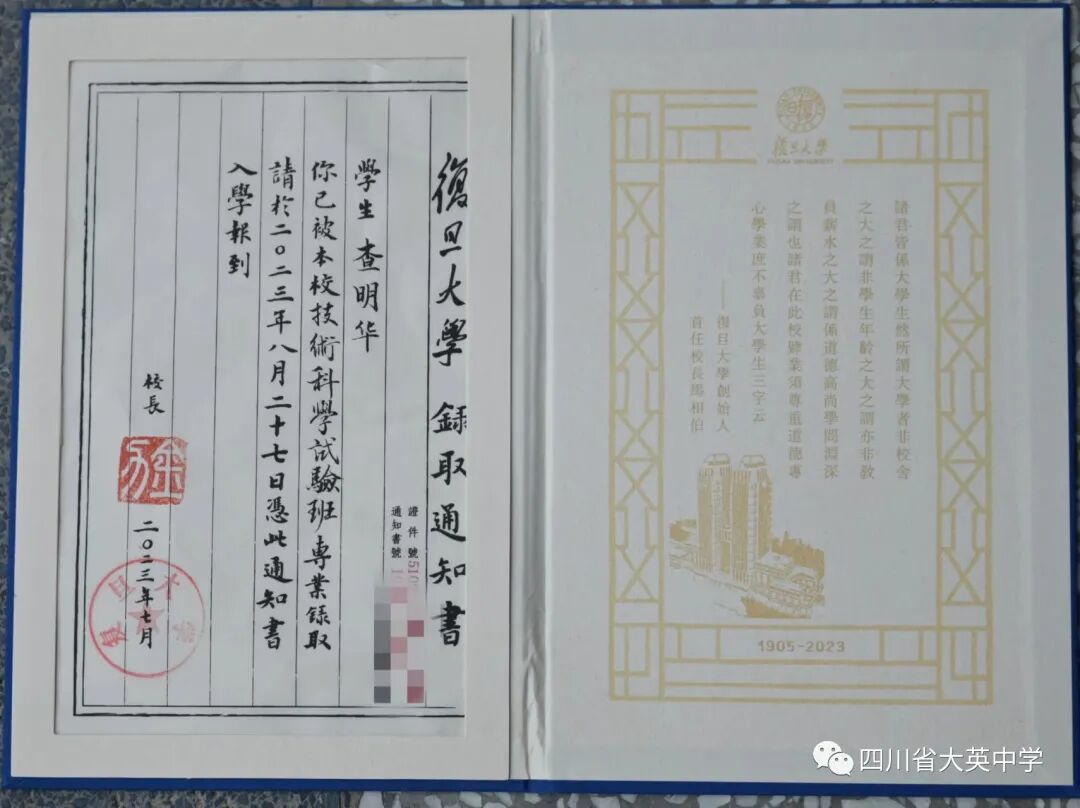 復旦大學 録取通知書
證件號510
通知書號10
学生 查明华
你已被本校技術科學試驗班專業録取
請於二〇二三年八月二十七日憑此通知書
入學報到
校長
金力
二〇二三年七月
復旦大學
復旦大學
諸君皆係大學生然所謂大學者非校舍
之大之謂非學生年齡之大之謂亦非教
員薪水之大之謂係道德高尚學問淵深
之謂也諸君在此校肄業須尊重道德專
心學業庶不辜負大學生三字云
——復旦大學創始人
首任校長馬相伯
1905-2023
四川省大英中学